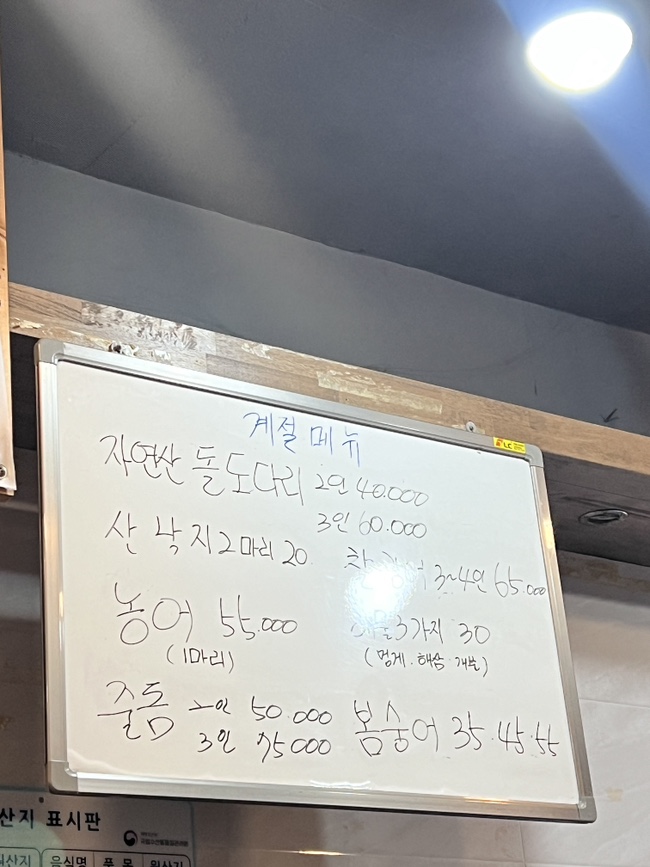 계절 메뉴
자연산 돌도다리 2인 40.000
3인 60.000
산 낙지 2마리 20.
3~4인 65.000
농어 55.000
(1마리)
3가지 30
(멍게. 해삼. 개불)
줄돔 2인 50.000
3인 75000
봄숭어 35. 45. 55
LC
산지 표시판
음식명
품 목
원산지